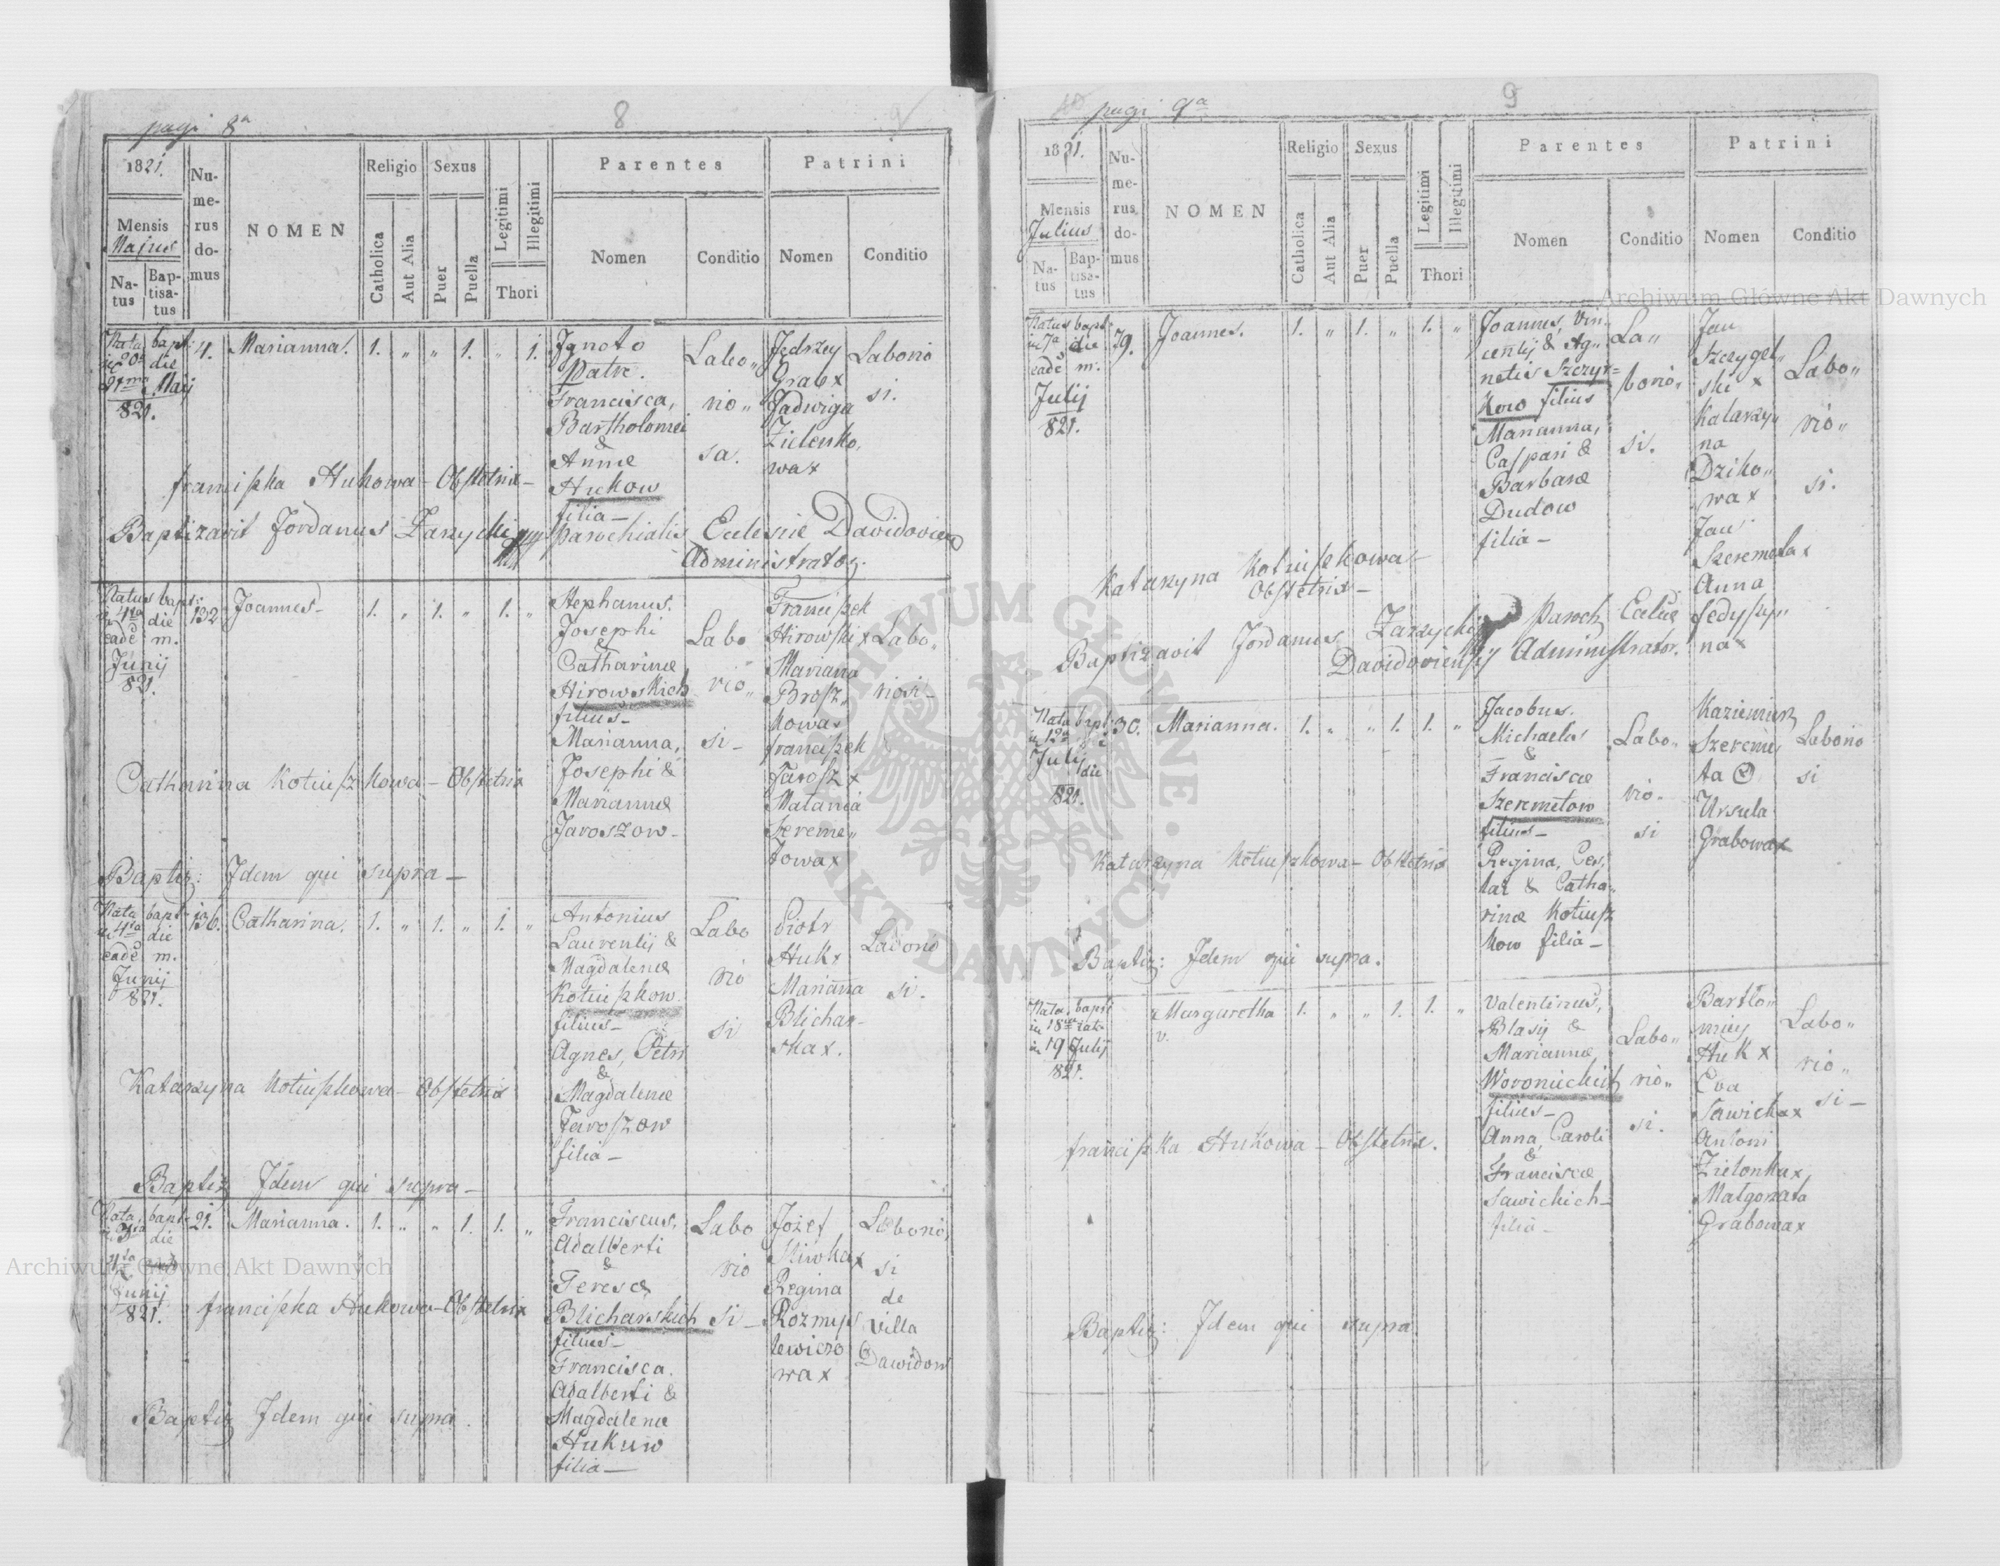 pagi 8a
8
1821.
Mensis
Majus
Natus
Baptisatus
Numerus domus
NOMEN
Religio
Catholica
Aut Alia
Sexus
Puer
Puella
Legitimi
Illegitimi
Thori
Parentes
Nomen
Conditio
Patrini
Nomen
Conditio
Nata bapt:
die
Maij
821.
4.
Marianna.
1. „ „ 1. „ 1.
Ignoto
Patre.
Francisca,
Bartholomei
&
Annæ
Hukow
filia –
Labo„
rio„
sa.
Jędrzey
Grab x
Jadwiga
Zielenko,
wa x
Laborio
si.
franciszka Hukowa – Obstetrix –
Baptizavit Jordanus Zarzycki parochialis Ecclesiæ Davidovien
Administrator.
Natus bapt:
in 4ta die
eadē m.
Junij
821.
132
Joannes –
1. „ 1. „ 1. „
Stephanus.
Josephi
&
Catharinæ
Hirowskich
filius –
Marianna,
Josephi &
Mariannæ
Jaroszow –
Labo
rio„
si –
Franciszek
Hirowski x
Mariana
Brosz„
kowa x
franciszek
Jarosz x
Matania
Szereme„
towa x
Labo„
riosi –
Catharina Kotiuszkowa – Obstetrix
Baptiz: Idem qui supra –
Nata bapt:
in 4ta die
eadē m.
Junij
821.
136.
Catharina.
1. „ 1. „ 1. „
Antonius
Laurentij &
Magdalenæ
Kotiuszkow
filius –
Agnes, Petri
&
Magdalenæ
Jaroszow
filia –
Labo
rio
si
Piotr
Huk x
Mariana
Blichar–
ska x.
Laborio
si.
Katarzyna Kotiuszkowa – Obstetrix
Baptiz Idem qui supra –
Nata bapt:
die
Junij
821.
21.
Marianna.
1. „ „ 1. 1. „
Franciscus,
Adalberti
&
Teresæ
Blicharskich
filius –
Francisca.
Adalberti &
Magdalenæ
Hukuw
filia –
Labo
rio
si –
Jozef
Sliwka x
Regina
Rozmys
lewiczo
wa x
Laborio,
si
de
villa
Dawidow
franciszka Hukowa – Obstetrix
Baptiz Idem qui supra.
pagi 9a
9
1821.
Mensis
Julius
Natus
Baptisatus
Numerus domus
NOMEN
Religio
Catholica
Aut Alia
Sexus
Puer
Puella
Legitimi
Illegitimi
Thori
Parentes
Nomen
Conditio
Patrini
Nomen
Conditio
Archiwum Główne Akt Dawnych
Natus bapt:
in 7a die
eadē m.
Julij
821.
29.
Joannes.
1. „ 1. „ 1. „
Joannes, Vin„
centij & Ag„
netis Szczyr=
kow filius
Marianna,
Caspari &
Barbaræ
Dudow
filia –
La„
borio,
si.
Jan
Szczygel„
ski x
Katarzy„
na
Dziko„
wa x
Jan
Szeremeta x
Anna
fedyszy„
na x
Labo„
rio„
si.
Katarzyna Kotiuszkowa –
Obstetrix –
Baptizavit Jordanus Zarzycki Paroch Ecclæ
Davidoviensis Administrator.
Nata bapt:
Julij die
821.
30.
Marianna.
1. „ „ 1. 1. „
Jacobus.
Michaelis
&
Franciscæ
Szeremetow
filius –
Regina, Ces,
lai & Catha„
rinæ Kotiusz
kow filia –
Labo„
rio.
si
Kazimierz
Szereme
ta x
Ursula
Grabowa x
Laborio
si
Katarzyna Kotiuszkowa – Obstetrix
Baptiz: Idem qui supra.
Nata, bapt:
in 18va
in 19 Julij
821.
Margaretha
1. „ „ 1. 1. „
Valentinus,
Blasij &
Mariannæ,
Woronieckich
filius –
Anna, Caroli
&
Franciscæ
Sawickich –
filia –
Labo„
rio„
si.
Bartło„
miey
Huk x
Eva
Sawicka x
Antoni
Zielonka x
Małgorzata
Grabowa x
Labo„
rio„
si –
franciszka Hukowa – Obstetrix.
Baptiz: Idem qui supra
Archiwum Główne Akt Dawnych
ARCHIWUM GŁÓWNE • AKT DAWNYCH •